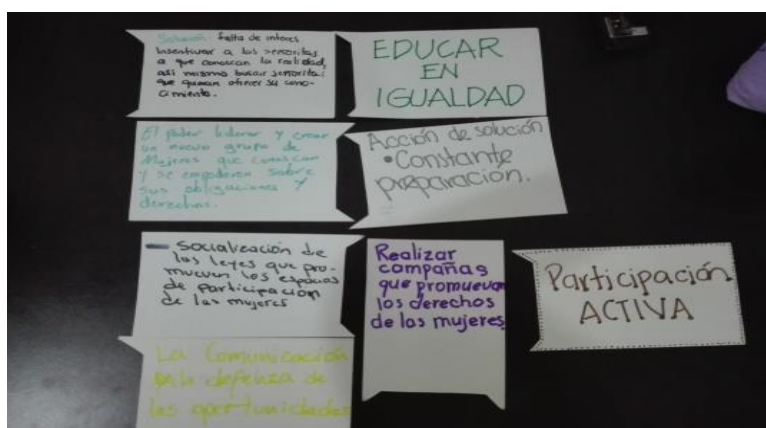 Solución: falta de interes
Insentivar a las señoritas
a que conoscan la realidad,
asi mismo buscar señoritas
que quieran ofrecer su cono-
cimiento.
EDUCAR
EN
IGUALDAD
El poder liderar y crear
un nuevo grupo de
Mujeres que conoscan
y se empoderen sobre
sus obligaciones y
derechos.
Acción de solución
• Constante
preparación.
- Socialización de
las leyes que pro-
mueven los espacios
de participación
de las mujeres
Realizar
compañas
que promuevan
los derechos
de las mujeres
Participación
ACTIVA
La Comunicación
en la defenza de
las oportunidades